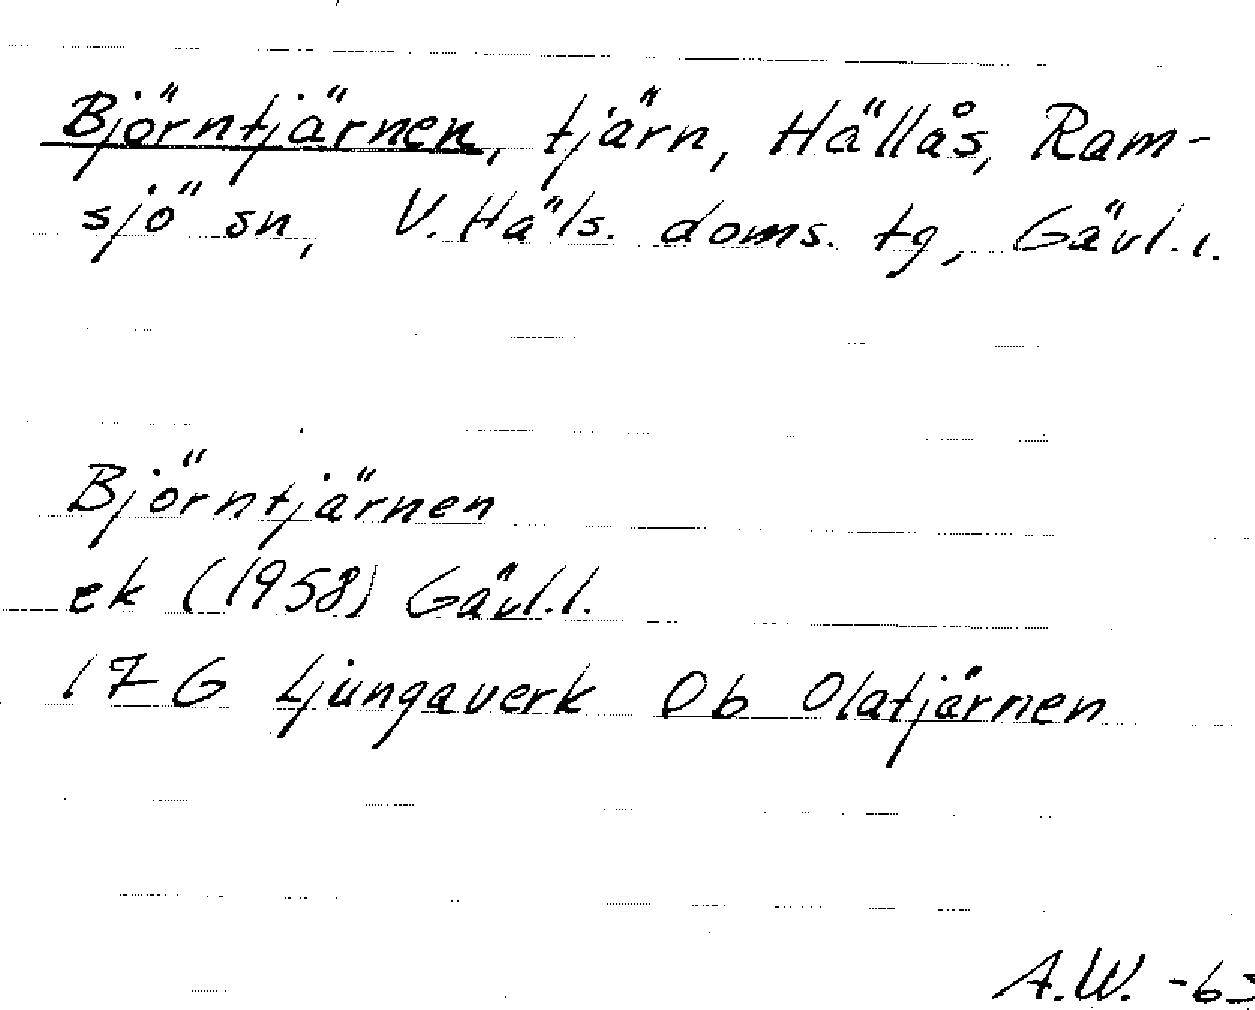 Björntjärnen, tjärn, Hällås, Ram-
sjö sn, V. Häls. doms. tg, Gävl. l.
Björntjärnen
ek (1958) Gävl. l.
17 G Ljungaverk 0b Olatjärnen
A.W. -63